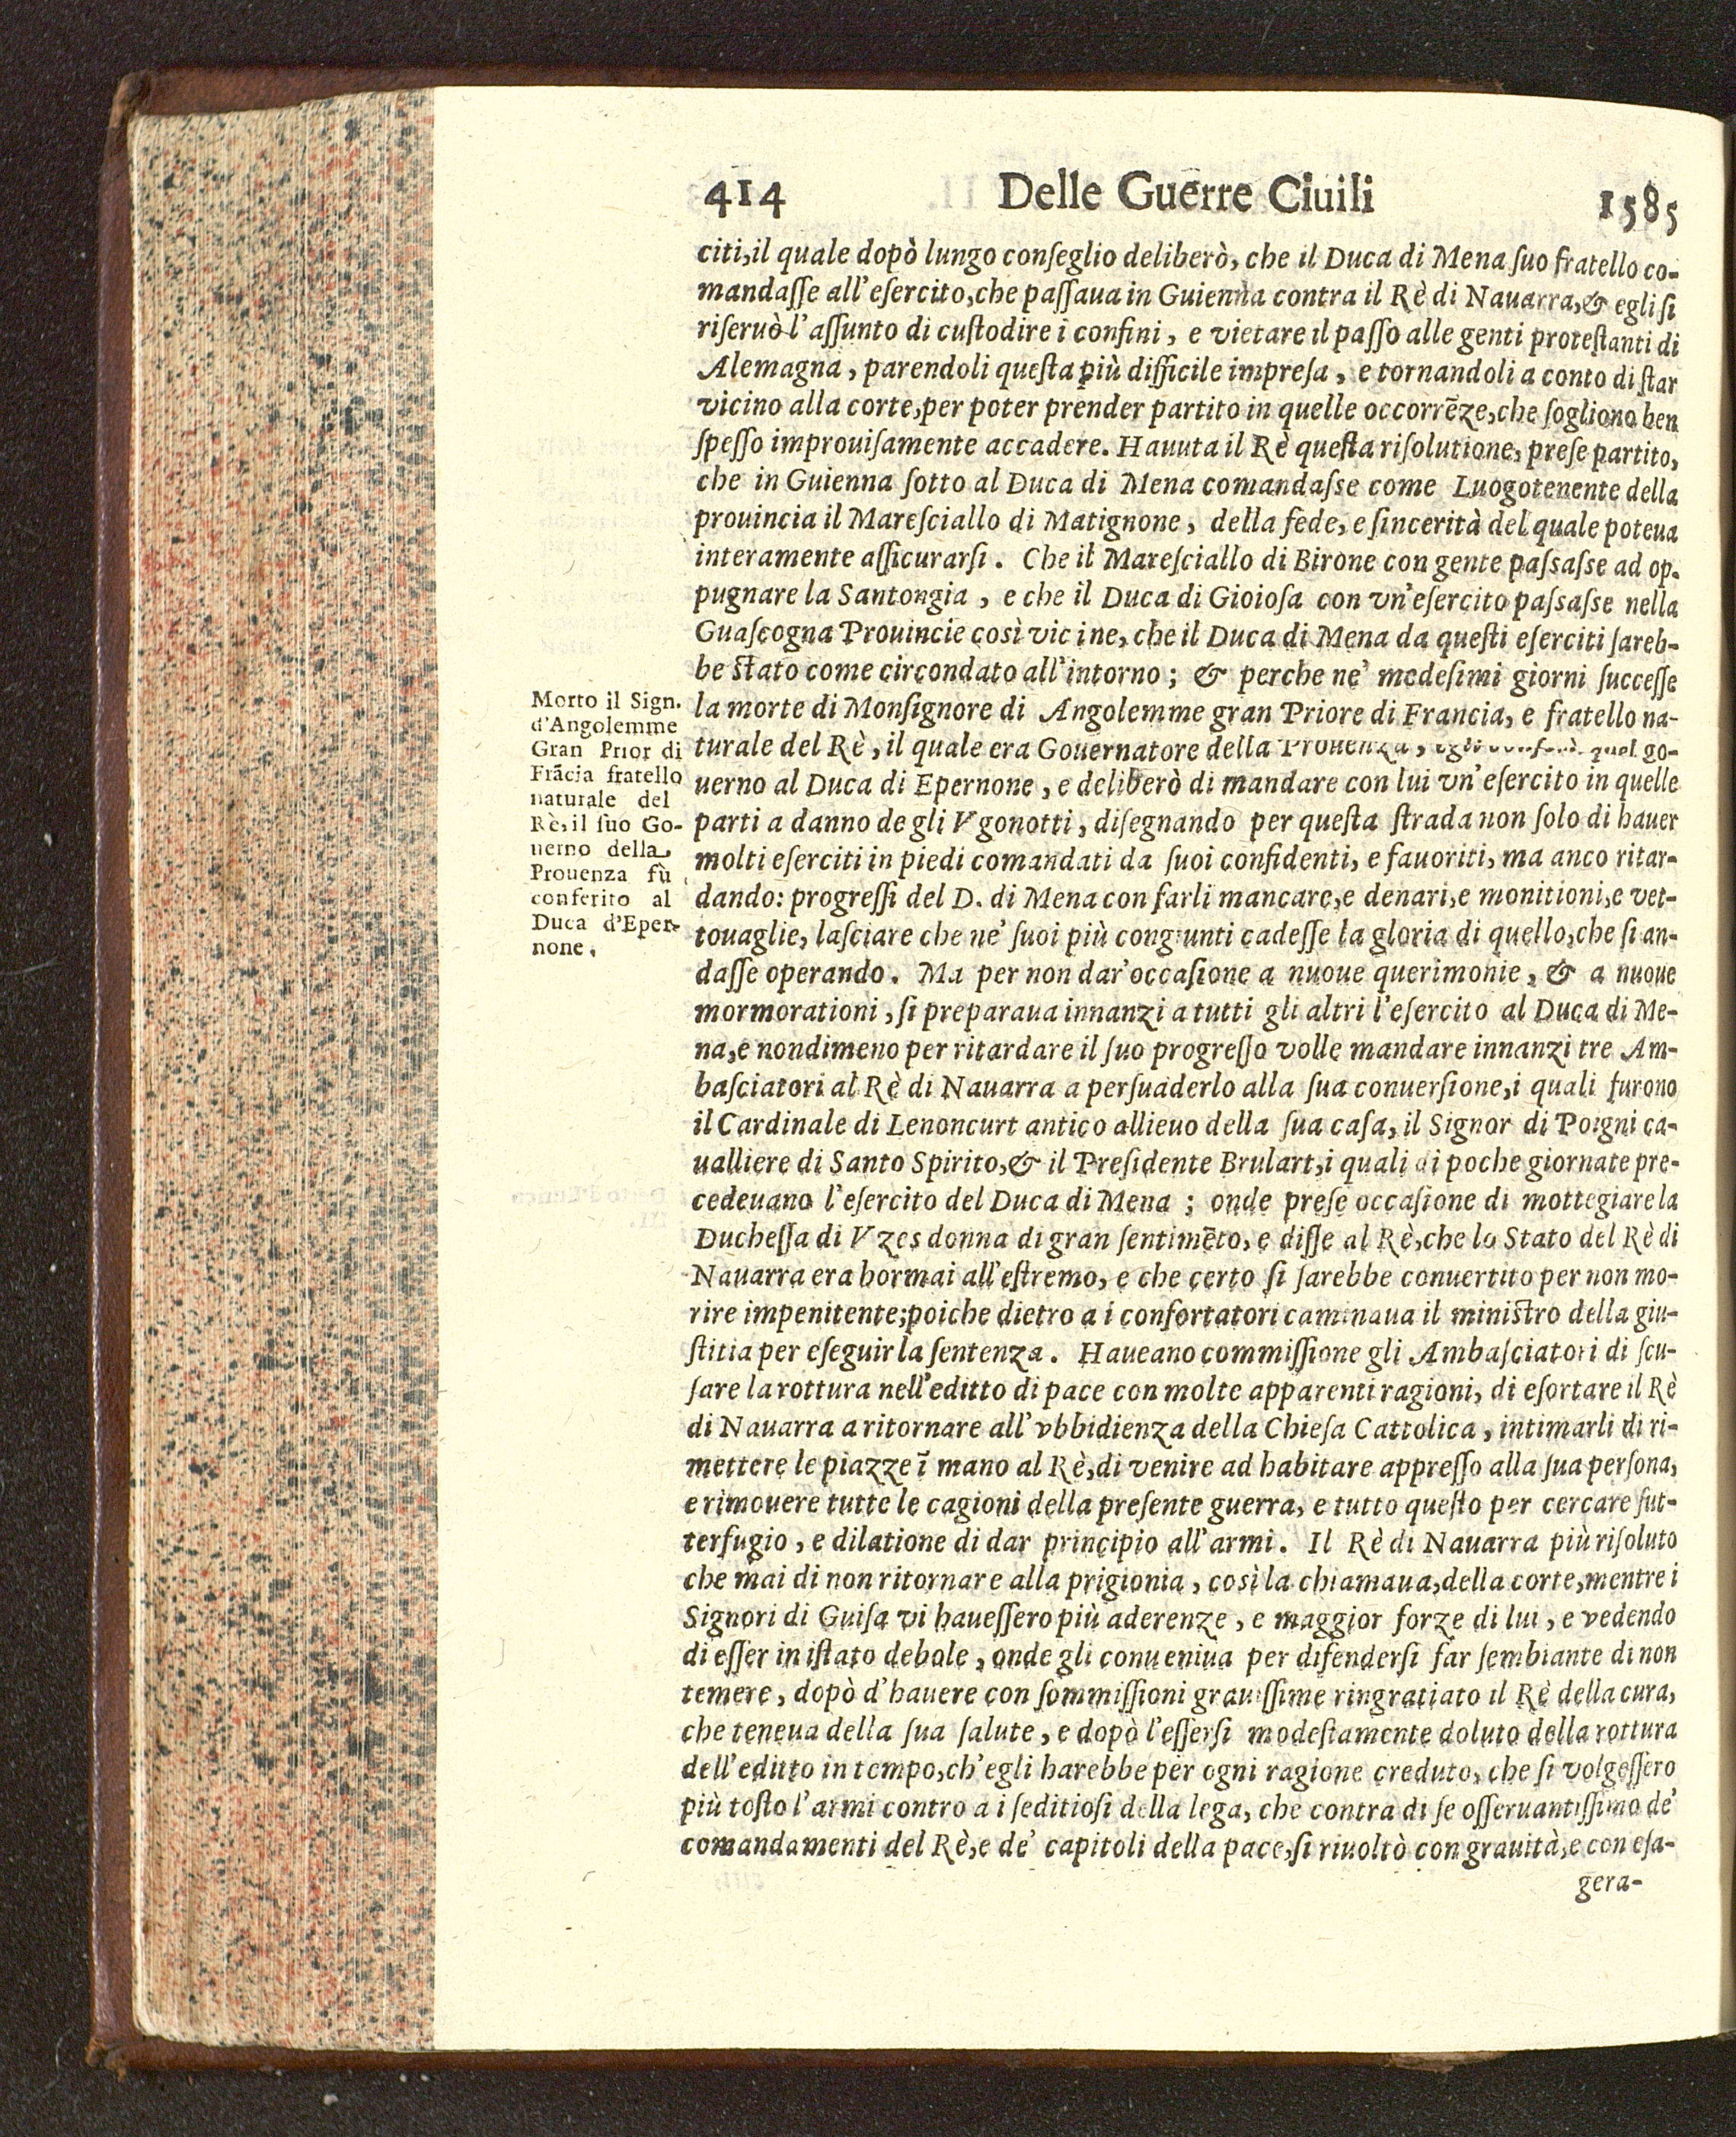 414 Delle Guerre Ciuili 1585
citi, il quale dopò lungo conſeglio deliberò, che il Duca di Mena ſuo fratello co-
mandaſſe all'eſercito, che paſſaua in Guienna contra il Rè di Nauarra, & egli ſi
riſeruò l'aſſunto di cuſtodire i confini, e vietare il paſſo alle genti proteſtanti di
Alemagna, parendoli queſta più difficile impreſa, e tornandoli a conto di ſtar
vicino alla corte, per poter prender partito in quelle occorrēze, che ſogliono ben
ſpeſſo improuiſamente accadere. Hauuta il Rè queſta riſolutione, preſe partito,
che in Guienna ſotto al Duca di Mena comandaſse come Luogotenente della
prouincia il Mareſciallo di Matignone, della fede, e ſincerità del quale poteua
interamente aſſicurarſi. Che il Mareſciallo di Birone con gente paſsaſse ad op-
pugnare la Santongia, e che il Duca di Gioioſa con vn'eſercito paſsaſse nella
Guaſcogna Prouincie così vicine, che il Duca di Mena da queſti eſerciti ſareb-
be ſtato come circondato all'intorno; & perche ne' medeſimi giorni ſucceſſe
la morte di Monſignore di Angolemme gran Priore di Francia, e fratello na-
turale del Rè, il quale era Gouernatore della Prouenza, quel go-
uerno al Duca di Epernone, e deliberò di mandare con lui vn'eſercito in quelle
parti a danno de gli Vgonotti, diſegnando per queſta ſtrada non ſolo di hauer
molti eſerciti in piedi comandati da ſuoi confidenti, e fauoriti, ma anco ritar-
dando: progreſſi del D. di Mena con farli mancare, e denari, e monitioni, e vet-
touaglie, laſciare che ne' ſuoi più congiunti cadeſſe la gloria di quello, che ſi an-
daſſe operando. Ma per non dar' occaſione a nuoue querimonie, & a nuoue
mormorationi, ſi preparaua innanzi a tutti gli altri l'eſercito al Duca di Me-
na, e nondimeno per ritardare il ſuo progreſſo volle mandare innanzi tre Am-
baſciatori al Rè di Nauarra a perſuaderlo alla ſua conuerſione, i quali furono
il Cardinale di Lenoncurt antico allieuo della ſua caſa, il Signor di Poigni ca-
ualliere di Santo Spirito, & il Preſidente Brulart, i quali di poche giornate pre-
cedeuano l'eſercito del Duca di Mena; onde preſe occaſione di mottegiare la
Ducheſſa di Vzes donna di gran ſentimēto, e diſſe al Rè, che lo Stato del Rè di
Nauarra era hormai all'eſtremo, e che certo ſi ſarebbe conuertito per non mo-
rire impenitente; poiche dietro a i confortatori caminaua il miniſtro della giu-
ſtitia per eſeguir la ſentenza. Haueano commiſſione gli Ambaſciatori di ſcu-
ſare la rottura nell'editto di pace con molte apparenti ragioni, di eſortare il Rè
di Nauarra a ritornare all'vbbidienza della Chieſa Cattolica, intimarli di ri-
mettere le piazze ī mano al Rè, di venire ad habitare appreſſo alla ſua perſona,
e rimouere tutte le cagioni della preſente guerra, e tutto queſto per cercare ſut-
terfugio, e dilatione di dar principio all'armi. Il Rè di Nauarra più riſoluto
che mai di non ritornare alla prigionia, così la chiamaua, della corte, mentre i
Signori di Guiſa vi haueſſero più aderenze, e maggior forze di lui, e vedendo
di eſſer in iſtato debole, onde gli conueniua per difenderſi far ſembiante di non
temere, dopò d'hauere con ſommiſſioni grauiſſime ringratiato il Rè della cura,
che teneua della ſua ſalute, e dopò l'eſſerſi modeſtamente doluto della rottura
dell'editto in tempo, ch'egli harebbe per ogni ragione creduto, che ſi volgeſſero
più toſto l'armi contro a i ſeditioſi della lega, che contra di ſe oſſeruantiſſimo de'
comandamenti del Rè, e de' capitoli della pace, ſi riuoltò con grauità, e con eſa-
gera-
Morto il Sign.
d'Angolemme
Gran Prior di
Frãcia fratello
naturale del
Rè, il ſuo Go-
uerno della
Prouenza fù
conferito al
Duca d'Eper-
none.